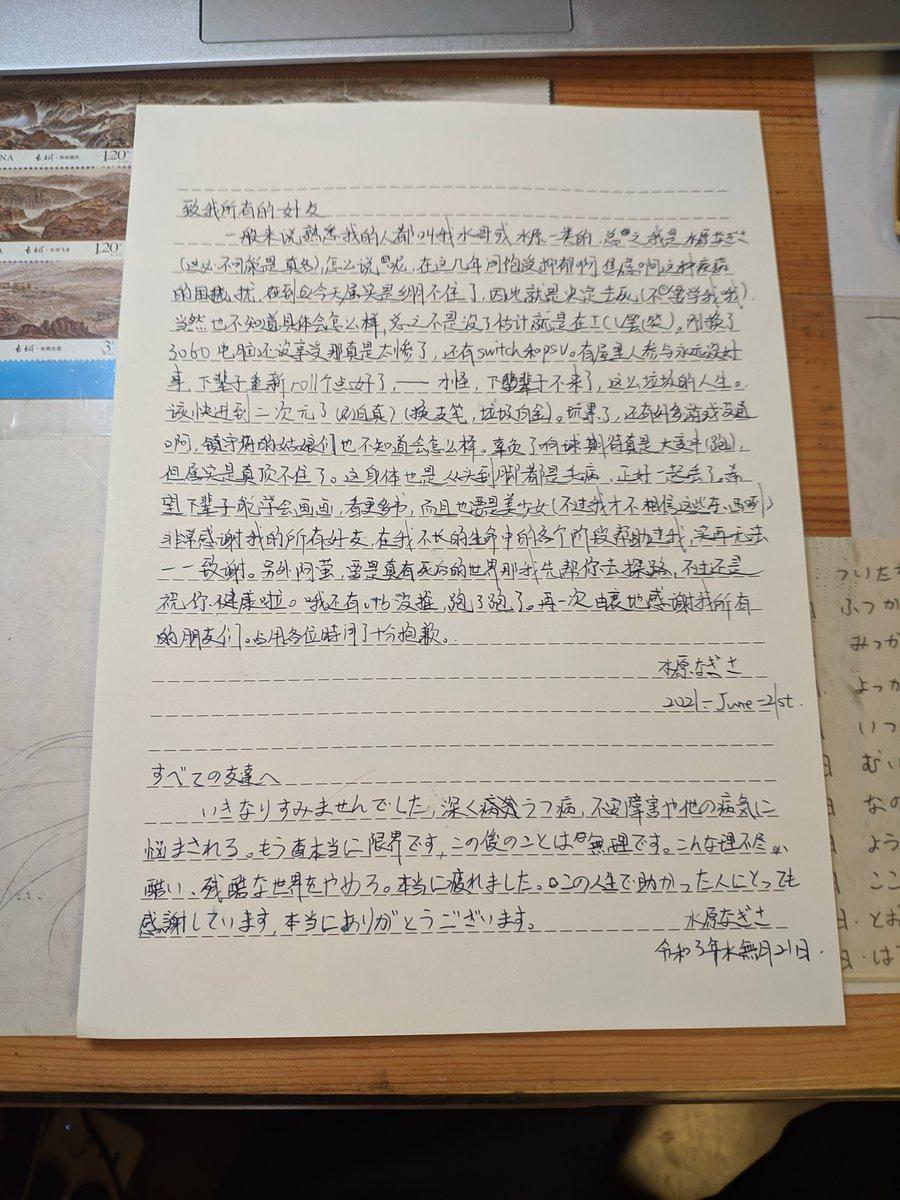 CHINA 长城 1.20元
长城 1.20元
长城 3元
致我所有的好友
一般来说熟悉我的人都叫我水哥或水原一类的,总之我是水原なぎさ
(这必不可能是真名),怎么说呢,在这几年间饱受抑郁啊焦虑啊这种疾病
的困扰,在到今天属实是绷不住了,因此就是决定去死(不要学我).
当然也不知道具体会怎么样,总之不是没了估计就是在ICU罢(笑)。刚换了
3060电脑还没享受那真是太惨了,还有switch和psv。有屋里人参与永远没好
事,下辈子重新roll个点好了,——才怪,下辈子不来了,这么垃圾的人生。
该快进到二次元了(迫真)(换支笔,垃圾白金)。玩累了,还有好多游戏没通
啊,镇守府的姑娘们也不知道会怎么样。辜负了咱妹期待真是大变(跑),
但属实是真顶不住了。这身体也是从头到脚都是毛病,正好一起丢了。希
望下辈子能学会画画,看更多书,而且也要是美少女(不过我才不相信这些东西)
非常感谢我的所有好友,在我不长的生命中的各个阶段帮助过我,实再无法
一一致谢。另外阿萤,要是真有死后的世界那我先帮你去探路,不过还是
祝你健康啦。哦还有v没推,跑了跑了。再一次由衷地感谢我所有
的朋友们。占用各位时间了十分抱歉。
水原なぎさ
2021-June-21st.
すべての友達へ
いきなりすみませんでした,深くうつ病,不安障害や他の病気に
悩まされる。もう本当に限界です,この後のことは無理です。こんな理不尽
酷い、残酷な世界をやめろ。本当に疲れました。この人生で助かった人にとても
感謝しています,本当にありがとうございます。
水原なぎさ
令和3年水無月21日.
ついたち
ふつか
みっか
よっか
いつ
むい
なの
よう
ここ
日.とお
日.は